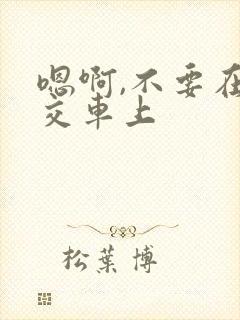 嗯啊,不要在
交车上
松叶博